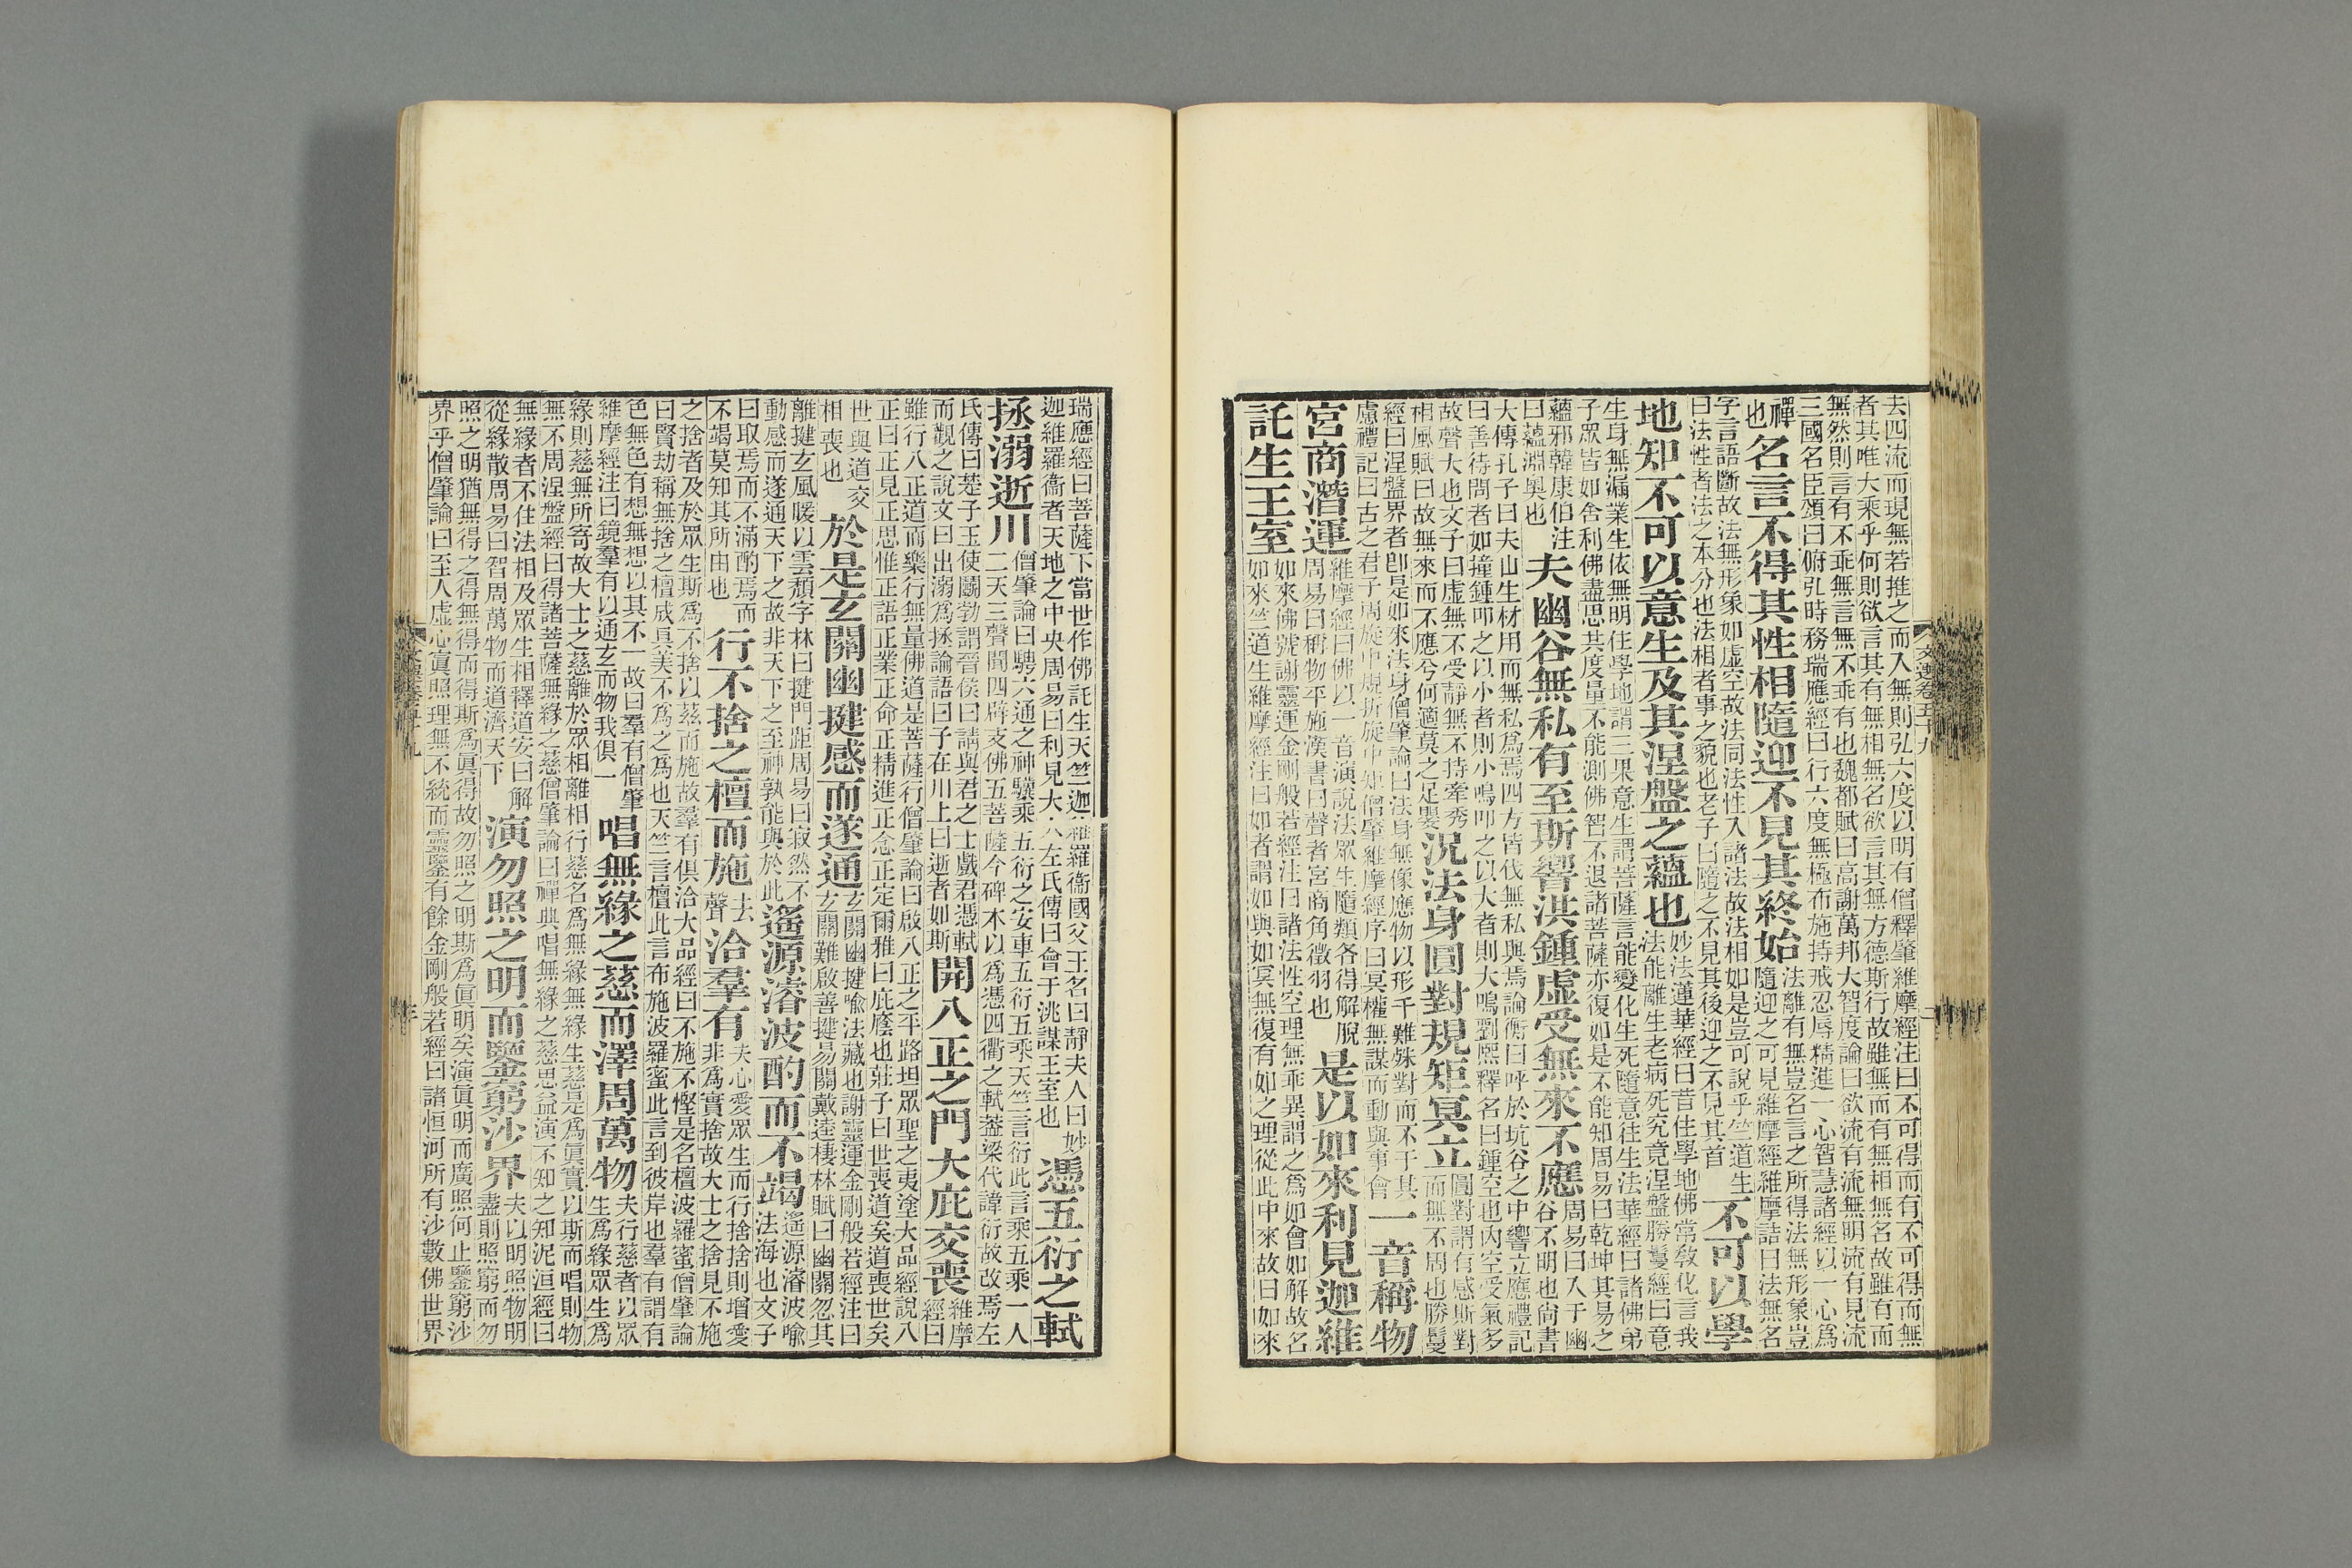 去四流而現無若推之而入無則弘六度以明有僧釋肇維摩經注曰不可得而有不可得而無
者其唯大乘乎何則欲言其有無相無名欲言其無方德斯行故雖無而有無相無名故雖有而
無然則言有不乖無言無不乖有也魏都賦曰高謝萬邦大智度論曰欲流有流無明流有見流
三國名臣頌曰俯弘時務瑞應經曰行六度無極布施持戒忍辱精進一心智慧諸經以一心為
禪也名言不得其性相隨迎不見其終始法離有無豈名言之所得法無形象豈隨迎之可見維摩經維摩詰曰法無名
字言語斷故法無形象如虛空故法同法性入諸法故法相如是豈可說乎竺道生曰法性者法之本分也法相者事之貌也老子曰隨之不見其後迎之不見其首不可以學
地知不可以意生及其涅盤之蘊也妙法蓮華經曰昔住學地佛常教化言我法能離生老病死究竟涅盤勝鬘經曰意
生身無漏業生依無明住學地謂三果意生謂菩薩言能變化生死隨意往生法華經曰諸佛弟
子眾皆如舍利佛盡思共度量不能測佛智不退諸菩薩亦復如是不能知周易曰乾坤其易之
蘊邪韓康伯注曰蘊淵奧也夫幽谷無私有至斯響洪鍾虛受無來不應周易曰入于幽谷不明也尚書
大傳孔子曰夫山生材用而無私爲焉四方皆伐無私與焉論衡曰呼於坑谷之中響立應禮記
曰善待問者如撞鍾叩之以小者則小鳴叩之以大者則大鳴劉熙釋名曰鍾空也內空受氣多
故聲大也文子曰虛無不受靜無不持牽秀相風賦曰故無來而不應兮何適莫之足嬰況法身圓對規矩冥立圓對謂有感斯對而無不周也勝鬘
經曰涅盤界者卽是如來法身僧肇論曰法身無像應物以形千難殊對而不干其慮禮記曰古之君子周旋中規折旋中矩僧肇維摩經序曰冥權無謀而動與事會一音稱物
宮商潛運維摩經曰佛以一音演說法眾生隨類各得解脫周易曰稱物平施漢書曰聲者宮商角徵羽也是以如來利見迦維
託生王室如來佛號謝靈運金剛般若經注曰諸法性空理無乖異謂之爲如會如解故名如來竺道生維摩經注曰如者謂如與如冥無復有如之理從此中來故曰如來
瑞應經曰菩薩下當世作佛託生天竺迦維羅衞國父王名曰靜夫人曰妙迦維羅衞者天地之中央周易曰利見大人左氏傳曰會于洮謀王室也憑五衍之軾
拯溺逝川僧肇論曰騁六通之神驥乘五衍之安車五衍五乘天竺言衍此言乘五乘一人二天三聲聞四辟支佛五菩薩今碑本以爲憑四衢之軾蓋梁代諱衍故改焉左
氏傳曰楚子玉使鬬勃謂晉侯曰請與君之士戲君憑軾而觀之說文曰出溺爲拯論語曰子在川上曰逝者如斯開八正之門大庇交喪維摩經曰
雖行八正道而樂行無量佛道是菩薩行僧肇論曰啟八正之平路坦眾聖之夷塗大品經說八
正曰正見正思惟正語正業正命正精進正念正定爾雅曰庇廕也莊子曰世喪道矣道喪世矣
世與道交相喪也於是玄關幽揵感而遂通玄關幽揵喻法藏也謝靈運金剛般若經注曰玄關難啟善揵易關戴逵棲林賦曰幽關忽其
離揵玄風暖以雲頹字林曰揵門距周易曰寂然不動感而遂通天下之故非天下之至神孰能與於此遙源濬波酌而不竭遙源濬波喻法海也文子
曰取焉而不滿酌焉而不竭莫知其所由也行不捨之檀而施去聲洽羣有夫心愛眾生而行捨捨則增愛非爲實捨故大士之捨見不施
之捨者及於眾生斯爲不捨以茲而施故羣有俱洽大品經曰不施不慳是名檀波羅蜜僧肇論
曰賢劫稱無捨之檀成具美不為之為也天竺言檀此言布施波羅蜜此言到彼岸也羣有謂有
色無色有想無想以其不一故曰羣有僧肇維摩經注曰鏡羣有以通玄而物我俱一唱無緣之慈而澤周萬物夫行慈者以眾生爲緣眾生爲
緣則慈無所寄故大士之慈離於眾相離相行慈名爲無緣無緣生慈是爲眞實以斯而唱則物
無不周涅盤經曰得諸菩薩無緣之慈僧肇論曰禪典唱無緣之慈思益演不知之知泥洹經曰
無緣者不住法相及眾生相釋道安曰解從緣散周易曰智周萬物而道濟天下演勿照之明而鑒窮沙界夫以明照物明盡則照窮而勿
照之明猶無得之得無得而得斯爲眞得故勿照之明斯爲眞明矣演眞明而廣照何止鑒窮沙
界乎僧肇論曰至人虛心冥照理無不統而靈鑒有餘金剛般若經曰諸恒河所有沙數佛世界